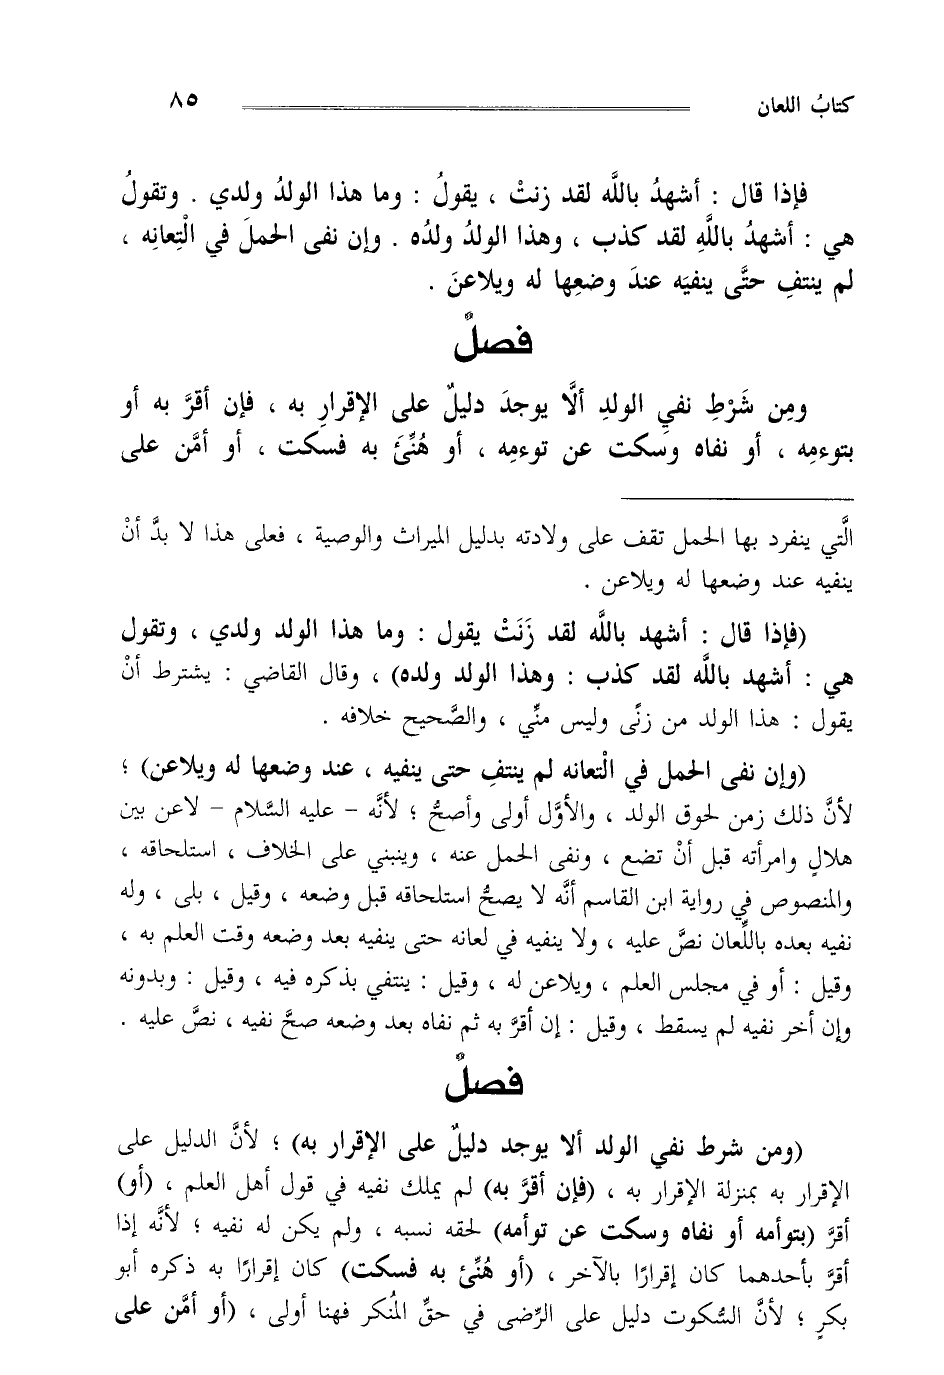 كتابُ اللعان ٨٥
فإذا قال : أشهدُ باللَّه لقد زنتْ ، يقولُ : وما هذا الولدُ ولدي . وتقولُ
هي : أشهدُ باللَّهِ لقد كذب ، وهذا الولدُ ولدُه . وإن نفى الحملَ في الْتِعانِه ،
لم ينتفِ حتَّى ينفيَه عندَ وضعِها له ويلاعنَ .
فصلٌ
ومِن شَرْطِ نفيِ الولدِ ألَّا يوجدَ دليلٌ على الإقرارِ به ، فإن أقرَّ به أو
بتوءمِه ، أو نفاه وسكت عن توءمِه ، أو هُنِّئَ به فسكت ، أو أمَّن على
الَّتي ينفرد بها الحمل تقف على ولادته بدليل الميراث والوصية ، فعلى هذا لا بدَّ أنْ
ينفيه عند وضعها له ويلاعن .
(فإذا قال : أشهد باللَّه لقد زَنَتْ يقول : وما هذا الولد ولدي ، وتقول
هي : أشهد باللَّه لقد كذب : وهذا الولد ولده) ، وقال القاضي : يشترط أنْ
يقول : هذا الولد من زنًى وليس منِّي ، والصَّحيح خلافه .
(وإن نفى الحمل في الْتعانه لم ينتفِ حتى ينفيه ، عند وضعها له ويلاعن) ؛
لأنَّ ذلك زمن لحوق الولد ، والأوَّل أولى وأصحُّ ؛ لأنَّه - عليه السَّلام - لاعن بين
هلالٍ وامرأته قبل أنْ تضع ، ونفى الحمل عنه ، وينبني على الخلاف ، استلحاقه ،
والمنصوص في رواية ابن القاسم أنَّه لا يصحُّ استلحاقه قبل وضعه ، وقيل ، بلى ، وله
نفيه بعده باللِّعان نصَّ عليه ، ولا ينفيه في لعانه حتى ينفيه بعد وضعه وقت العلم به ،
وقيل : أو في مجلس العلم ، ويلاعن له ، وقيل : ينتفي بذكره فيه ، وقيل : وبدونه
وإن أخر نفيه لم يسقط ، وقيل : إن أقرَّ به ثم نفاه بعد وضعه صحَّ نفيه ، نصَّ عليه .
فصلٌ
(ومن شرط نفي الولد ألا يوجد دليلٌ على الإقرار به) ؛ لأنَّ الدليل على
الإقرار به بمنزلة الإقرار به ، (فإن أقرَّ به) لم يملك نفيه في قول أهل العلم ، (أو)
أقرَّ (بتوأمه أو نفاه وسكت عن توأمه) لحقه نسبه ، ولم يكن له نفيه ؛ لأنَّه إذا
أقرَّ بأحدهما كان إقرارًا بالآخر ، (أو هُنِّئ به فسكت) كان إقرارًا به ذكره أبو
بكرٍ ؛ لأنَّ السُّكوت دليل على الرِّضى في حقِّ المُنكر فهنا أولى ، (أو أمَّن على